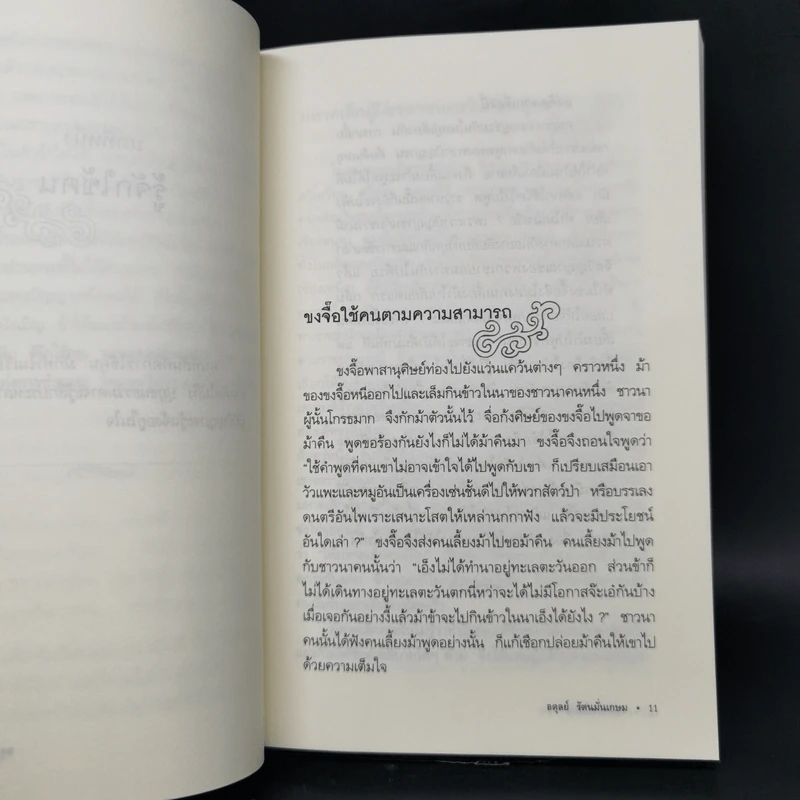 ขงจื๊อใช้คนตามความสามารถ
ขงจื๊อพาสานุศิษย์ท่องไปยังแว่นแคว้นต่างๆ คราวหนึ่ง ม้า
ของขงจื๊อหนีออกไปและเล็มกินข้าวในนาของชาวนาคนหนึ่ง ชาวนา
ผู้นั้นโกรธมาก จึงกักม้าตัวนั้นไว้ จื่อก้งศิษย์ของขงจื๊อไปพูดจาขอ
ม้าคืน พูดขอร้องกันยังไงก็ไม่ได้ม้าคืนมา ขงจื๊อจึงถอนใจพูดว่า
"ใช้คำพูดที่คนเขาไม่อาจเข้าใจได้ไปพูดกับเขา ก็เปรียบเสมือนเอา
วัวแพะและหมูอันเป็นเครื่องเซ่นชั้นดีไปให้พวกสัตว์ป่า หรือบรรเลง
ดนตรีอันไพเราะเสนาะโสตให้เหล่านกกาฟัง แล้วจะมีประโยชน์
อันใดเล่า ?" ขงจื๊อจึงส่งคนเลี้ยงม้าไปขอม้าคืน คนเลี้ยงม้าไปพูด
กับชาวนาคนนั้นว่า "เอ็งไม่ได้ทำนาอยู่ทะเลตะวันออก ส่วนข้าก็
ไม่ได้เดินทางอยู่ทะเลตะวันตกนี่หว่าจะได้ไม่มีโอกาสจ๊ะเอ๋กันบ้าง
เมื่อเจอกันอย่างงี้แล้วม้าข้าจะไปกินข้าวในนาเอ็งได้ยังไง ?" ชาวนา
คนนั้นได้ฟังคนเลี้ยงม้าพูดอย่างนั้น ก็แก้เชือกปล่อยม้าคืนให้เขาไป
ด้วยความเต็มใจ
อดุลย์ รัตนมั่นเกษม • 11